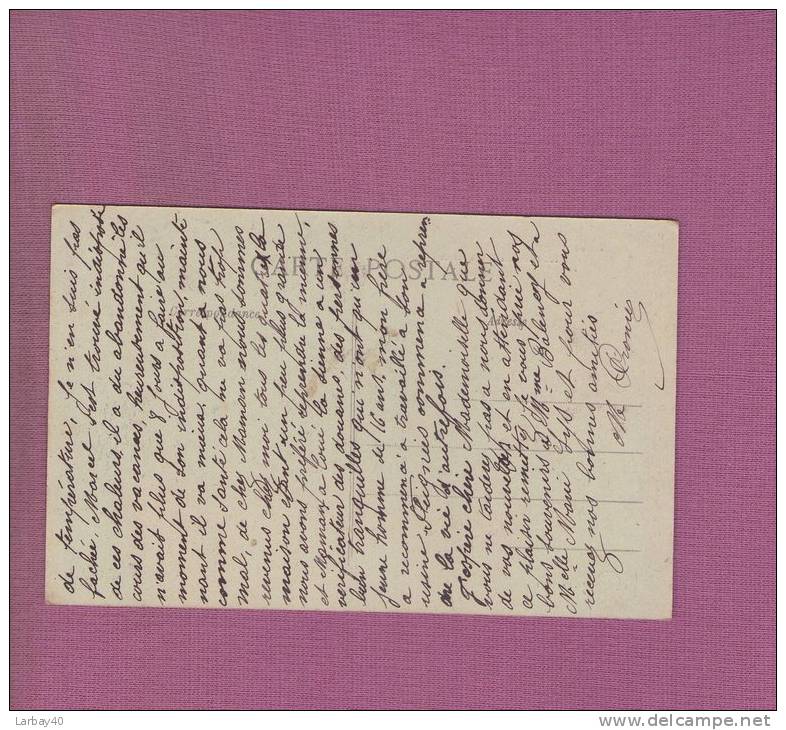 de température, je n'en suis pas
fachée. Marcel s'est trouvé indisposé
de ces chaleurs, il a du abandonné les
cours des vacances, heureusement qu'il
n'avait plus que 8 jours à faire au
moment de son indisposition, mainte
nant il va mieux, quant à nous
comme santé cela ne va pas trop
mal, de chez Maman nous sommes
revenus chez moi tous les quatre la
maison étant un peu plus grande
nous avons préféré reprendre la mienne,
et Maman a loué la sienne a un
vérificateur des douanes, des personnes
bien tranquilles qui n'ont qu'un
jeune homme de 16 ans, mon frère
a recommencé a travaillé à son
usine, Plaisirs commence a repren
de la vie d'autrefois.
J'espère chère Mademoiselle que
vous ne tarderez pas a nous donner
de vos nouvelles et en attendant
ce plaisir remettez je vous prie nos
bons souvenirs à Mme Balency et à
Melle Marie Lys et pour vous
recevez nos bonnes amitiés
M
CARTE POSTALE
Correspondance
Adresse
Larbay40
www.delcampe.net